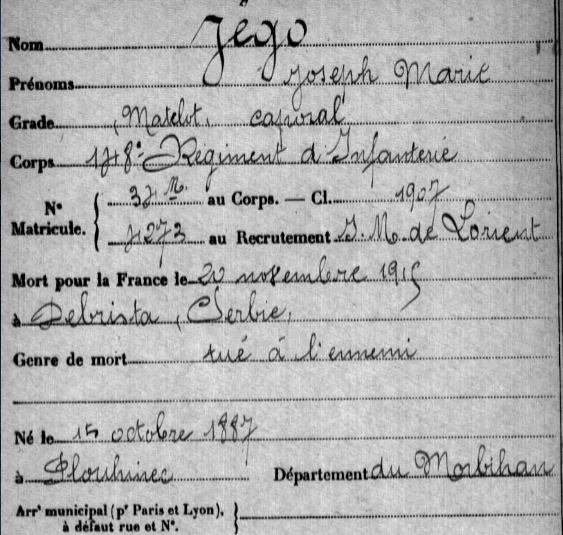 Nom Jégo
Prénoms Joseph Marie
Grade (Matelot) caporal
Corps 148e Régiment d'Infanterie
N° Matricule. { 32 M. au Corps. — Cl. 1907
7273 au Recrutement I. M. de Lorient
Mort pour la France le 20 novembre 1915
à Debrista, Serbie,
Genre de mort tué à l'ennemi
Né le 15 octobre 1887
à Plouhinec Département du Morbihan
Arrt municipal (pr Paris et Lyon), }
à défaut rue et N°.